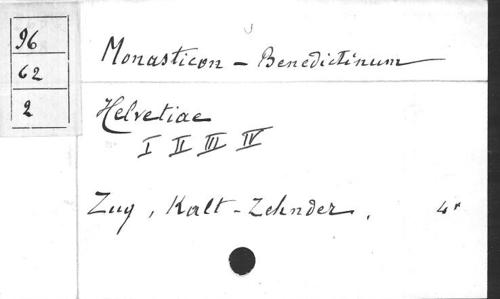 96
62
2
Monasticon - Benedictinum
Helvetiae
I II III IV
Zug, Kalt-Zehnder.